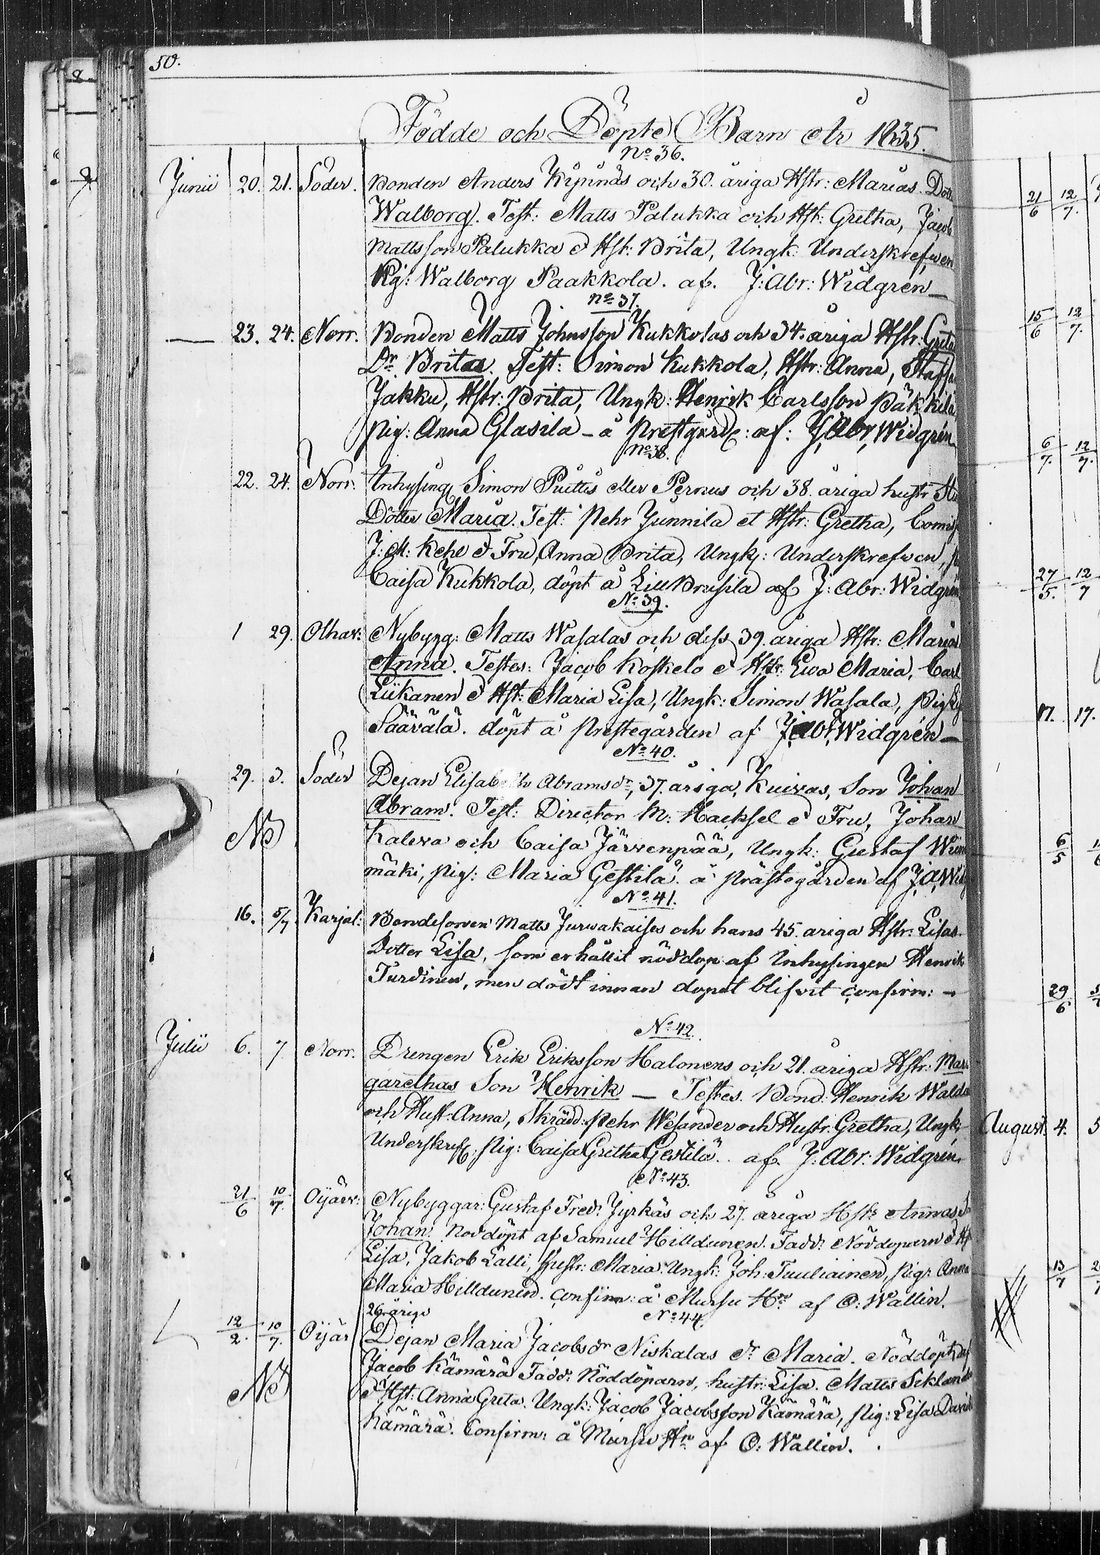 50.
Födde och Döpte Barn År 1835.
No 36.
Junii 20. 21. Söder. Bonden Anders Kipinäs och 30. åriga Hstr: Marias Dott
Walborg. Test: Matts Palukka och Hst: Gretha, Jacob
Mattsson Palukka & Hst: Brita, Ungk: Underskrefwen
Pig: Walborg Paakkola. af. J: Abr: Widgren
No 37.
— 23. 24. Norr. Bonden Matts Johnsson Kukkolas och 34. åriga Hstr: Gretas
Dr. Brita. Test: Simon Kukkola, Hstr: Anna, Staff
Jakku, Hstr: Brita, Ungk: Henrik Carlsson Päkkilä
pig: Anna Glasila - å Prestgård: af: J, Abr, Widgrén
No 38.
22. 24. Norr. Inhysing Simon Puttus eller Pernus och 38. åriga hustr
Dotter Maria. Test: Pehr Junnila et Hstr: Gretha, Comis
J: M: Kehl & Fru, Anna Brita, Ungk: Underskrefven,
Caisa Kukkola, döpt å af J: Abr: Widgrén
No 39.
1 29. Olhav: Nybygg: Matts Wasalas och dess 39. åriga Hstr: Marias
Anna. Testes: Jacob Koskelo & Hstr: Ewa Maria, Carl
Liikanen & Hst: Maria Lisa, Ungk: Simon Wasala, Pig
Säävälä. döpt å Prestegården af J, Abr, Widgrén —
No 40.
29. 3. Söder Dejan Elisabeth Abramsdr, 37. åriga, Kuivas, Son Johan
Abram. Test: Director M: Hacksel & Fru, Johan
NB Kaleva och Caisa Järvenpää, Ungk: Gustaf
mäki, Pig: Maria Gestilä. å Prästegården af J, A, Widg
No 41.
16. 5/7 Karjal: Bondesonen Matts Jurvakaises och hans 45. åriga Hstr: Lisas
Dotter Lisa, som erhållit nöddop af Inhysingen Henrik
Turdinen, men dödt innan dopet blifvit confirm: —
No 42.
Julii 6. 7. Norr. Drengen Erik Eriksson Halonens och 21. åriga Hstr: Mar
garethas Son Henrik — Testes. Bond. Henrik Walda
och Hust: Anna, Skrädd: Pehr Wesander och Hustr: Gretha, Ungk:
Underskref: Pig: Caisa Gretha Gestilä. af J: Abr: Widgrén,
No 43.
21/6 10/7 Oijärv: Nybyggar: Gustaf Fredr: Jyrkäs och 27. åriga Hstr Annas S
Johan. Nöddöpt af Samuel Hilldunen. Fadd: Nöddoparn & H
Lisa, Jakob Lalli, Hustr: Maria. Ungk: Joh: Tuuliainen, Pigr Anna
Maria Hilldunen. Confirm: å Mursu Hn af O: Wallin.
26 årige No 44.
12/2. 10/7. Oijär Dejan Maria Jacobsdr Niskalas dr Maria. Nöddöpt af
Jacob Kämärä Fadd: Nöddöparn, hustr: Lisa. Matts
NB & Hst: Anna Greta. Ungk: Jacob Jacobsson Kämärä, Pig: Lisa Davids
Kämärä. Confirm: å Mursu Hn af O: Wallin.
21/6 12/7.
15/6 12/7.
6/7. 12/7.
27/5. 12/7
17. 17.
6/5
29/6
August 4. 5
13/7